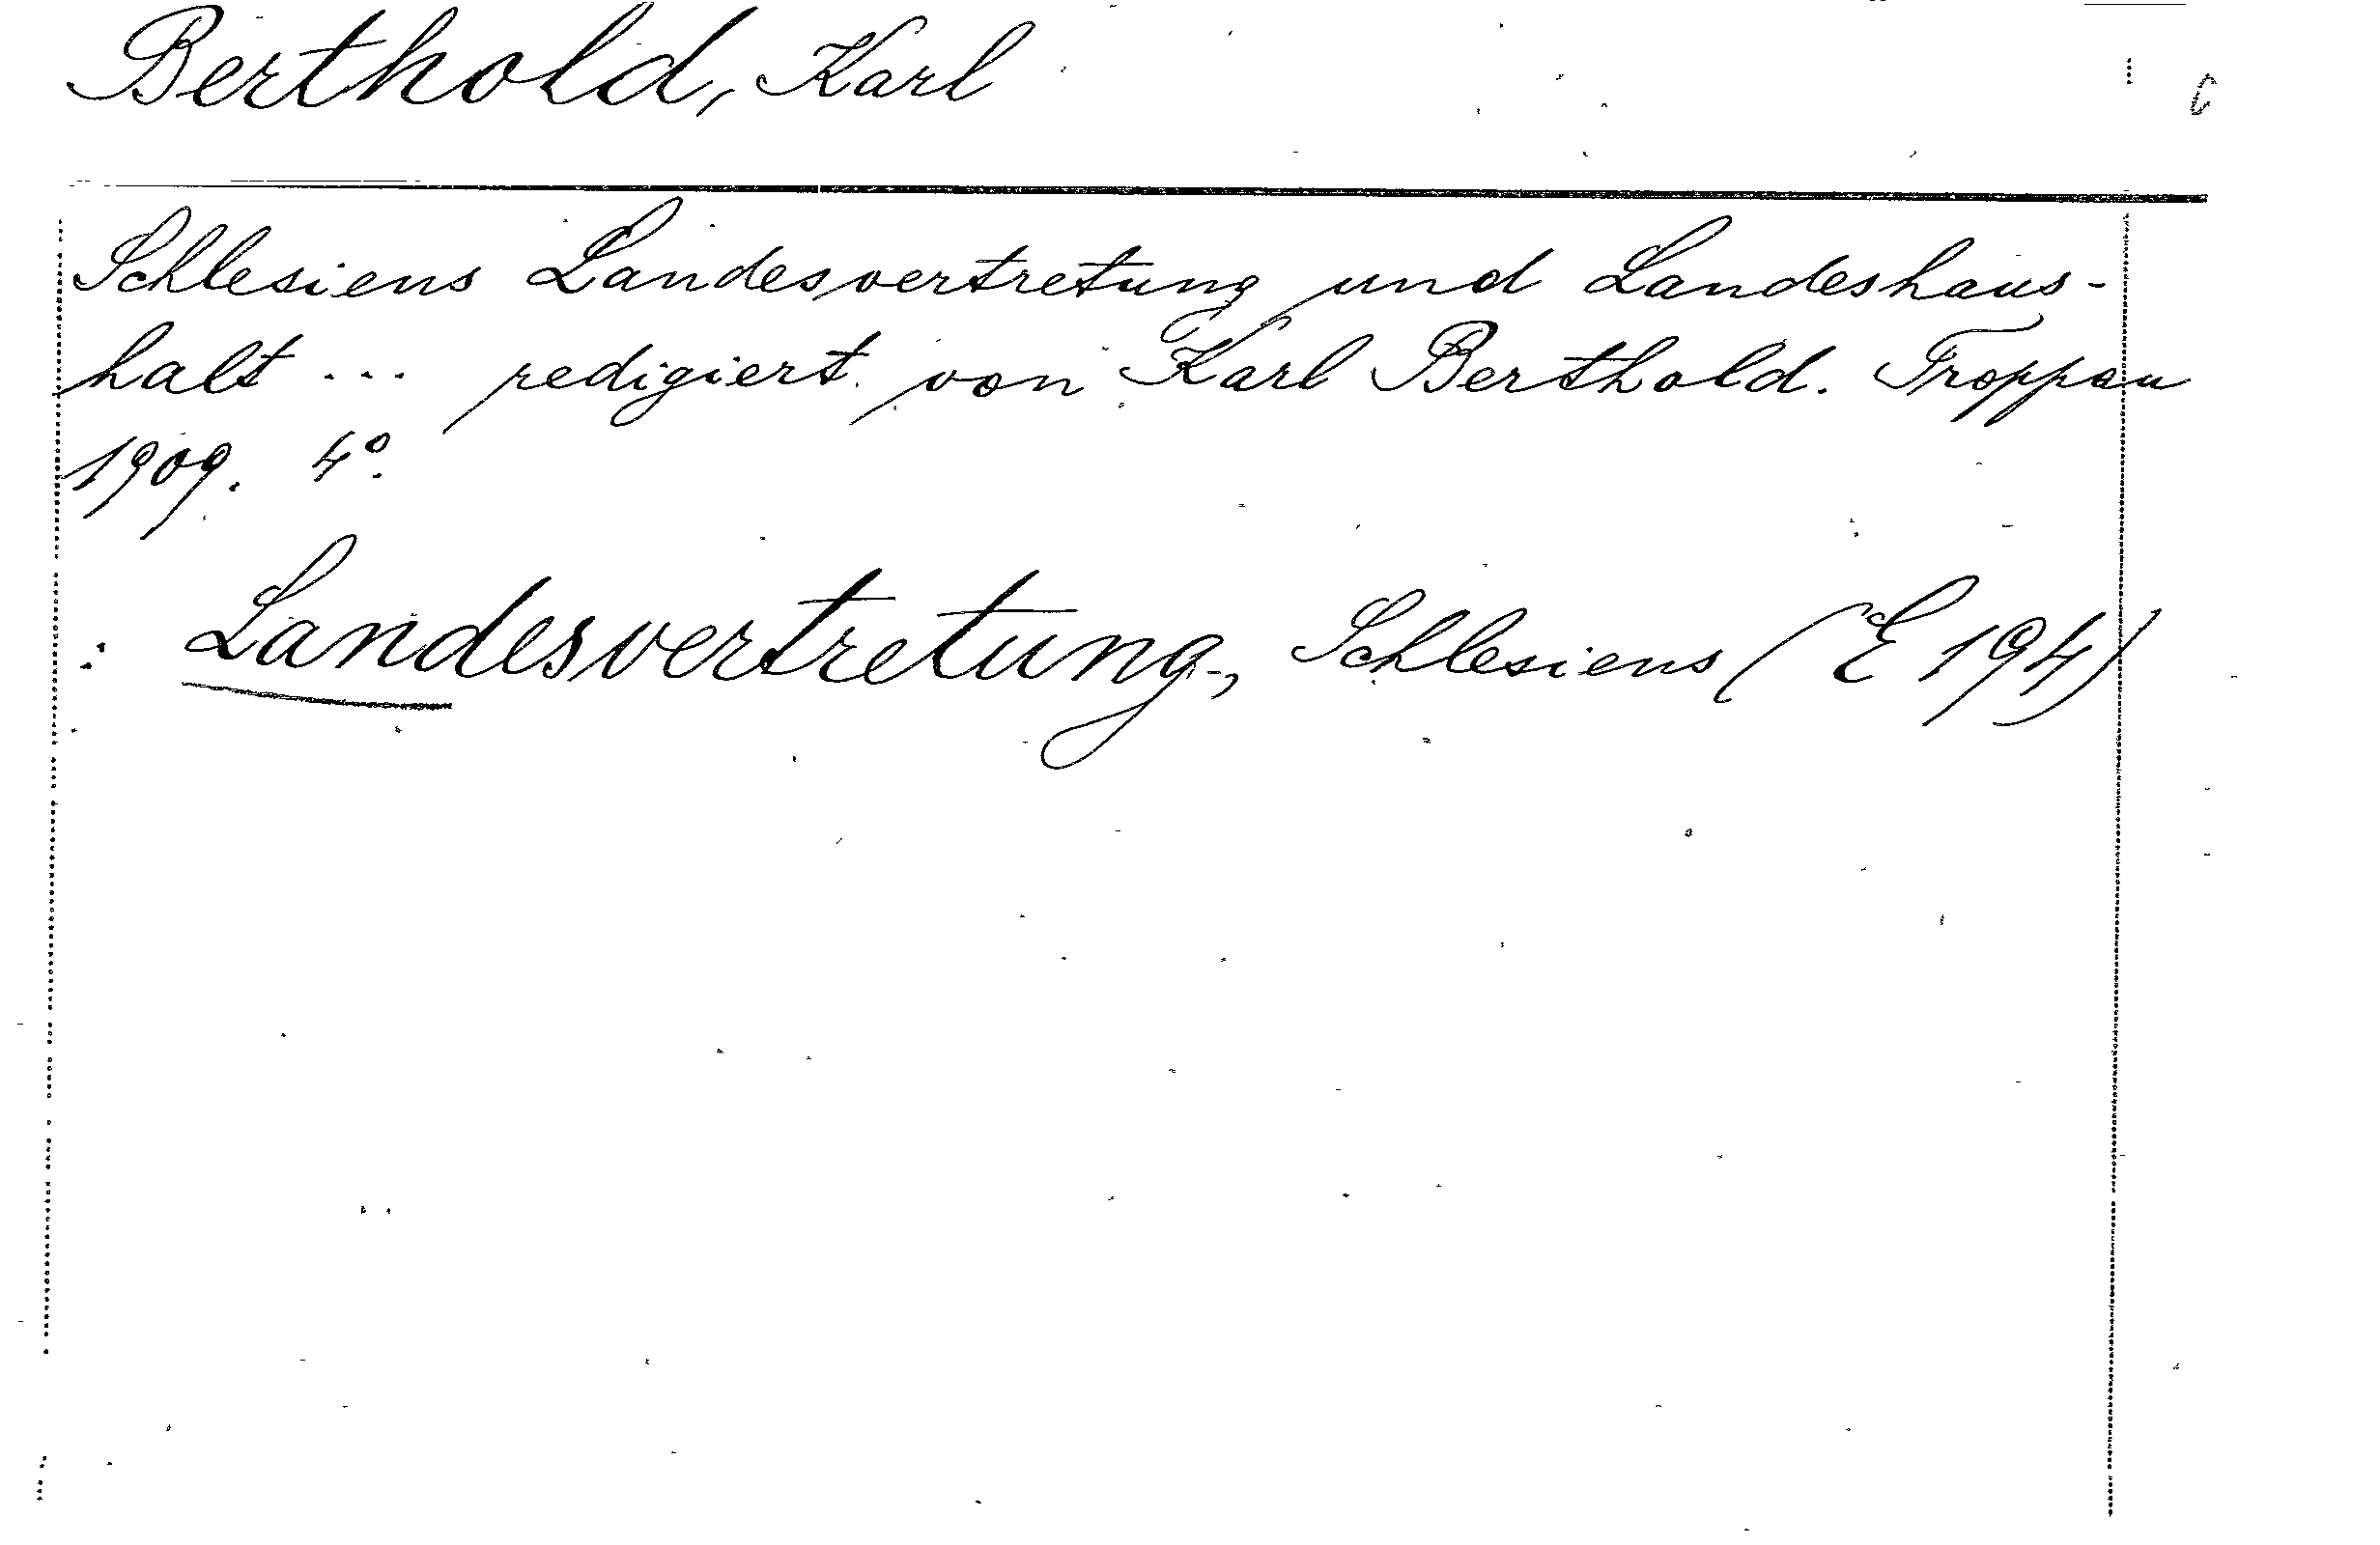 Berthold, Karl
Schlesiens Landesvertretung und Landeshaus-
halt ... redigiert von Karl Berthold. Troppau
1909. 4°.
: Landesvertretung, Schlesiens (E 194)